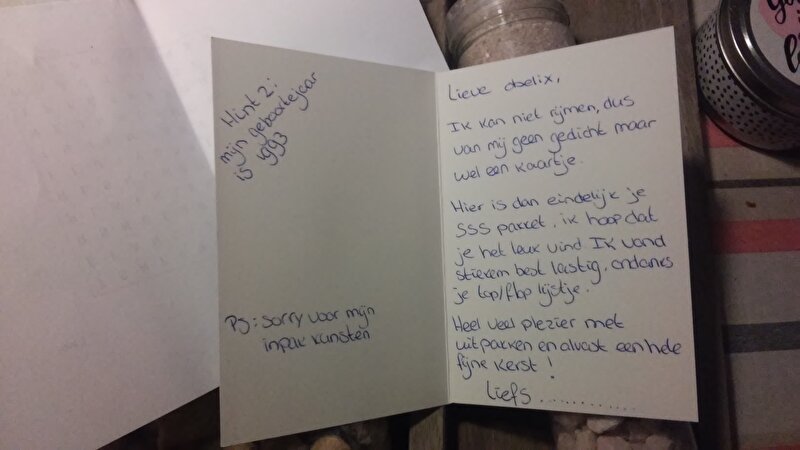 Hint 2:
mijn geboortejaar
is 1993
PS: sorry voor mijn
inpak kunsten
Lieve obelix,
Ik kan niet rijmen, dus
van mij geen gedicht maar
wel een kaartje.
Hier is dan eindelijk je
SSS pakket, ik hoop dat
je het leuk vind. Ik vond
stiekem best lastig, ondanks
je top/flop lijstje.
Heel veel plezier met
uitpakken en alvast een hele
fijne kerst!
Liefs.............